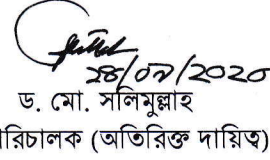 ২৪/০৯/2020
ড. মো. সলিমুল্লাহ
রিচালক (অতিরিক্ত দায়িত্ব)